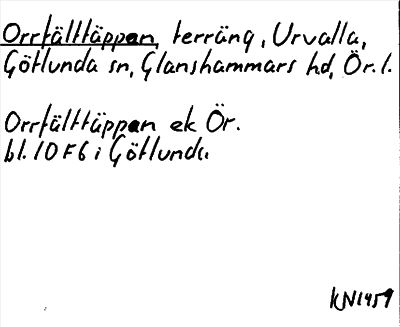 Orrfälttäppan, terräng, Urvalla,
Götlunda sn, Glanshammars hd, Ör. l.
Orrfälttäppan ek Ör.
bl. 10F6 i Götlunda
KN1959